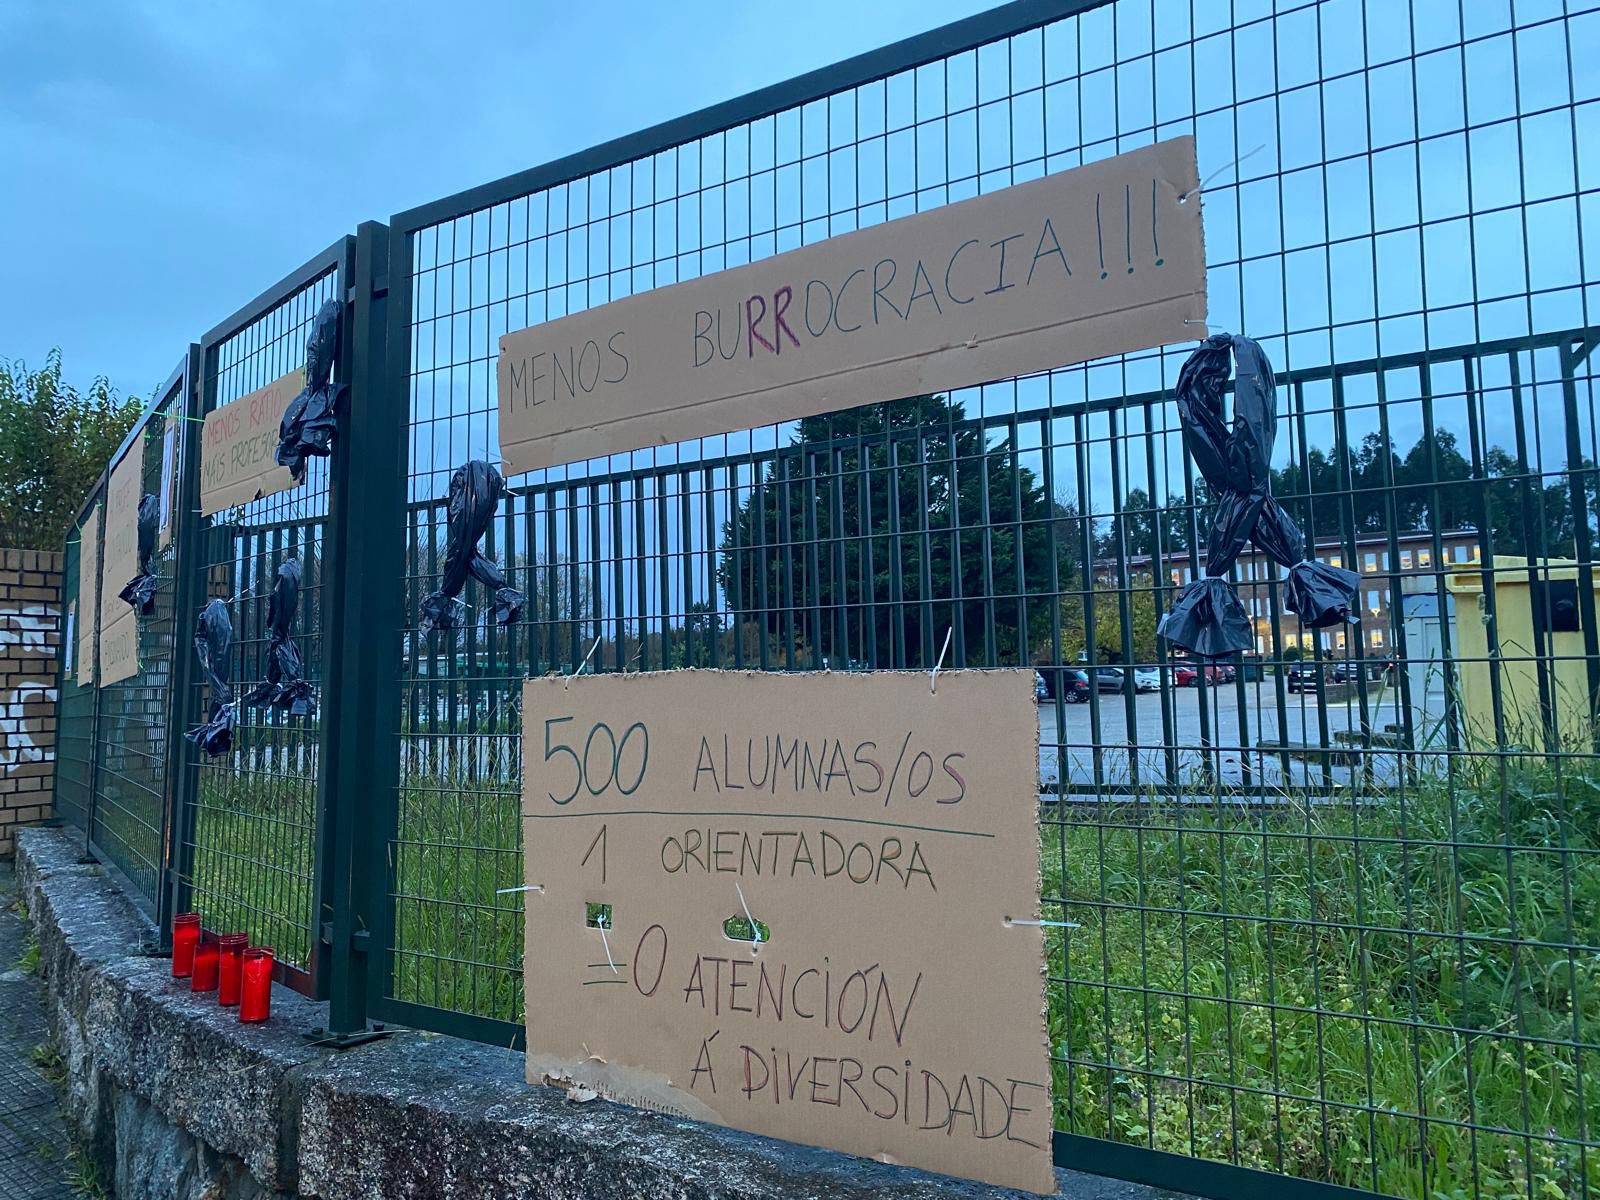 MENOS BURROCRACIA!!!
MENOS RATIO
MÁIS PROFESOR
500 ALUMNAS/OS
1 ORIENTADORA
=0 ATENCIÓN
Á DIVERSIDADE